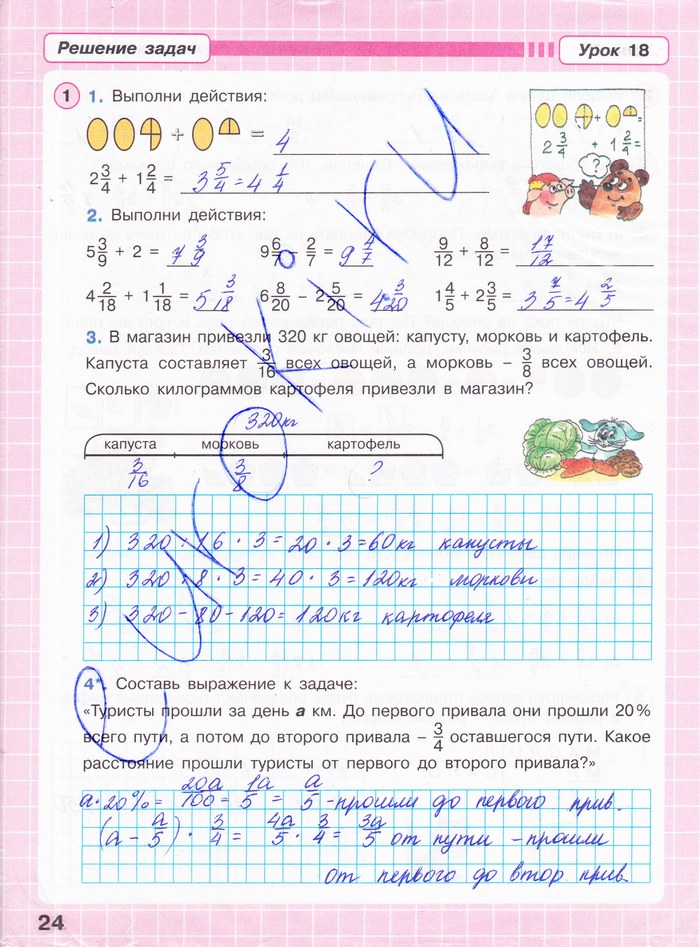 Решение задач Урок 18
1 1. Выполни действия:
+ = 4
2 3/4 + 1 2/4 = 3 5/4 = 4 1/4
2 3/4 + 1 2/4 =
?
2. Выполни действия:
5 3/9 + 2 = 7 3/9 9 6/7 - 2/7 = 9 4/7 9/12 + 8/12 = 17/12
4 2/18 + 1 1/18 = 5 3/18 6 8/20 - 2 5/20 = 4 3/20 1 4/5 + 2 3/5 = 3 7/5 = 4 2/5
3. В магазин привезли 320 кг овощей: капусту, морковь и картофель.
Капуста составляет 3/16 всех овощей, а морковь – 3/8 всех овощей.
Сколько килограммов картофеля привезли в магазин?
320кг
капуста морковь картофель
3/16 3/8 ?
1) 320 : 16 · 3 = 20 · 3 = 60 кг капусты
2) 320 : 8 · 3 = 40 · 3 = 120кг моркови
3) 320 - 80 - 120 = 120 кг картофеля
4*. Составь выражение к задаче:
«Туристы прошли за день a км. До первого привала они прошли 20%
всего пути, а потом до второго привала – 3/4 оставшегося пути. Какое
расстояние прошли туристы от первого до второго привала?»
a · 20% = 20a/100 = 1a/5 = a/5 - прошли до первого прив.
(a - a/5) · 3/4 = 4a/5 · 3/4 = 3a/5 от пути - прошли
от первого до втор. прив.
24